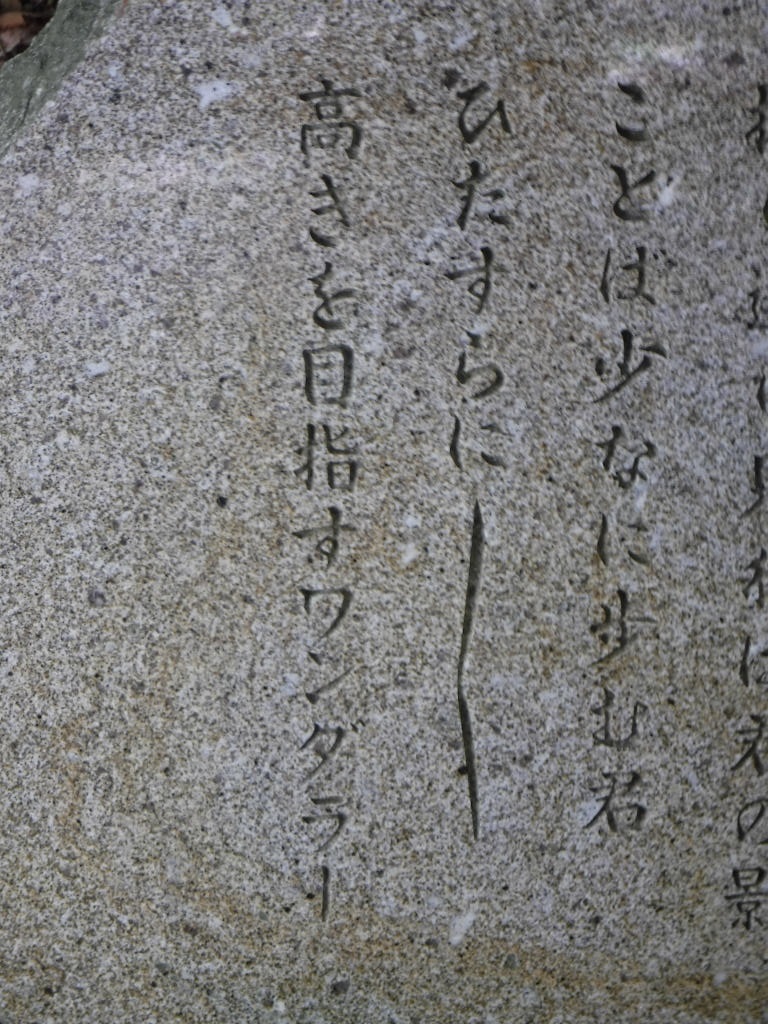 は君の景
ことば少なに歩む君
ひたすらに——
高きを目指すワンダラー